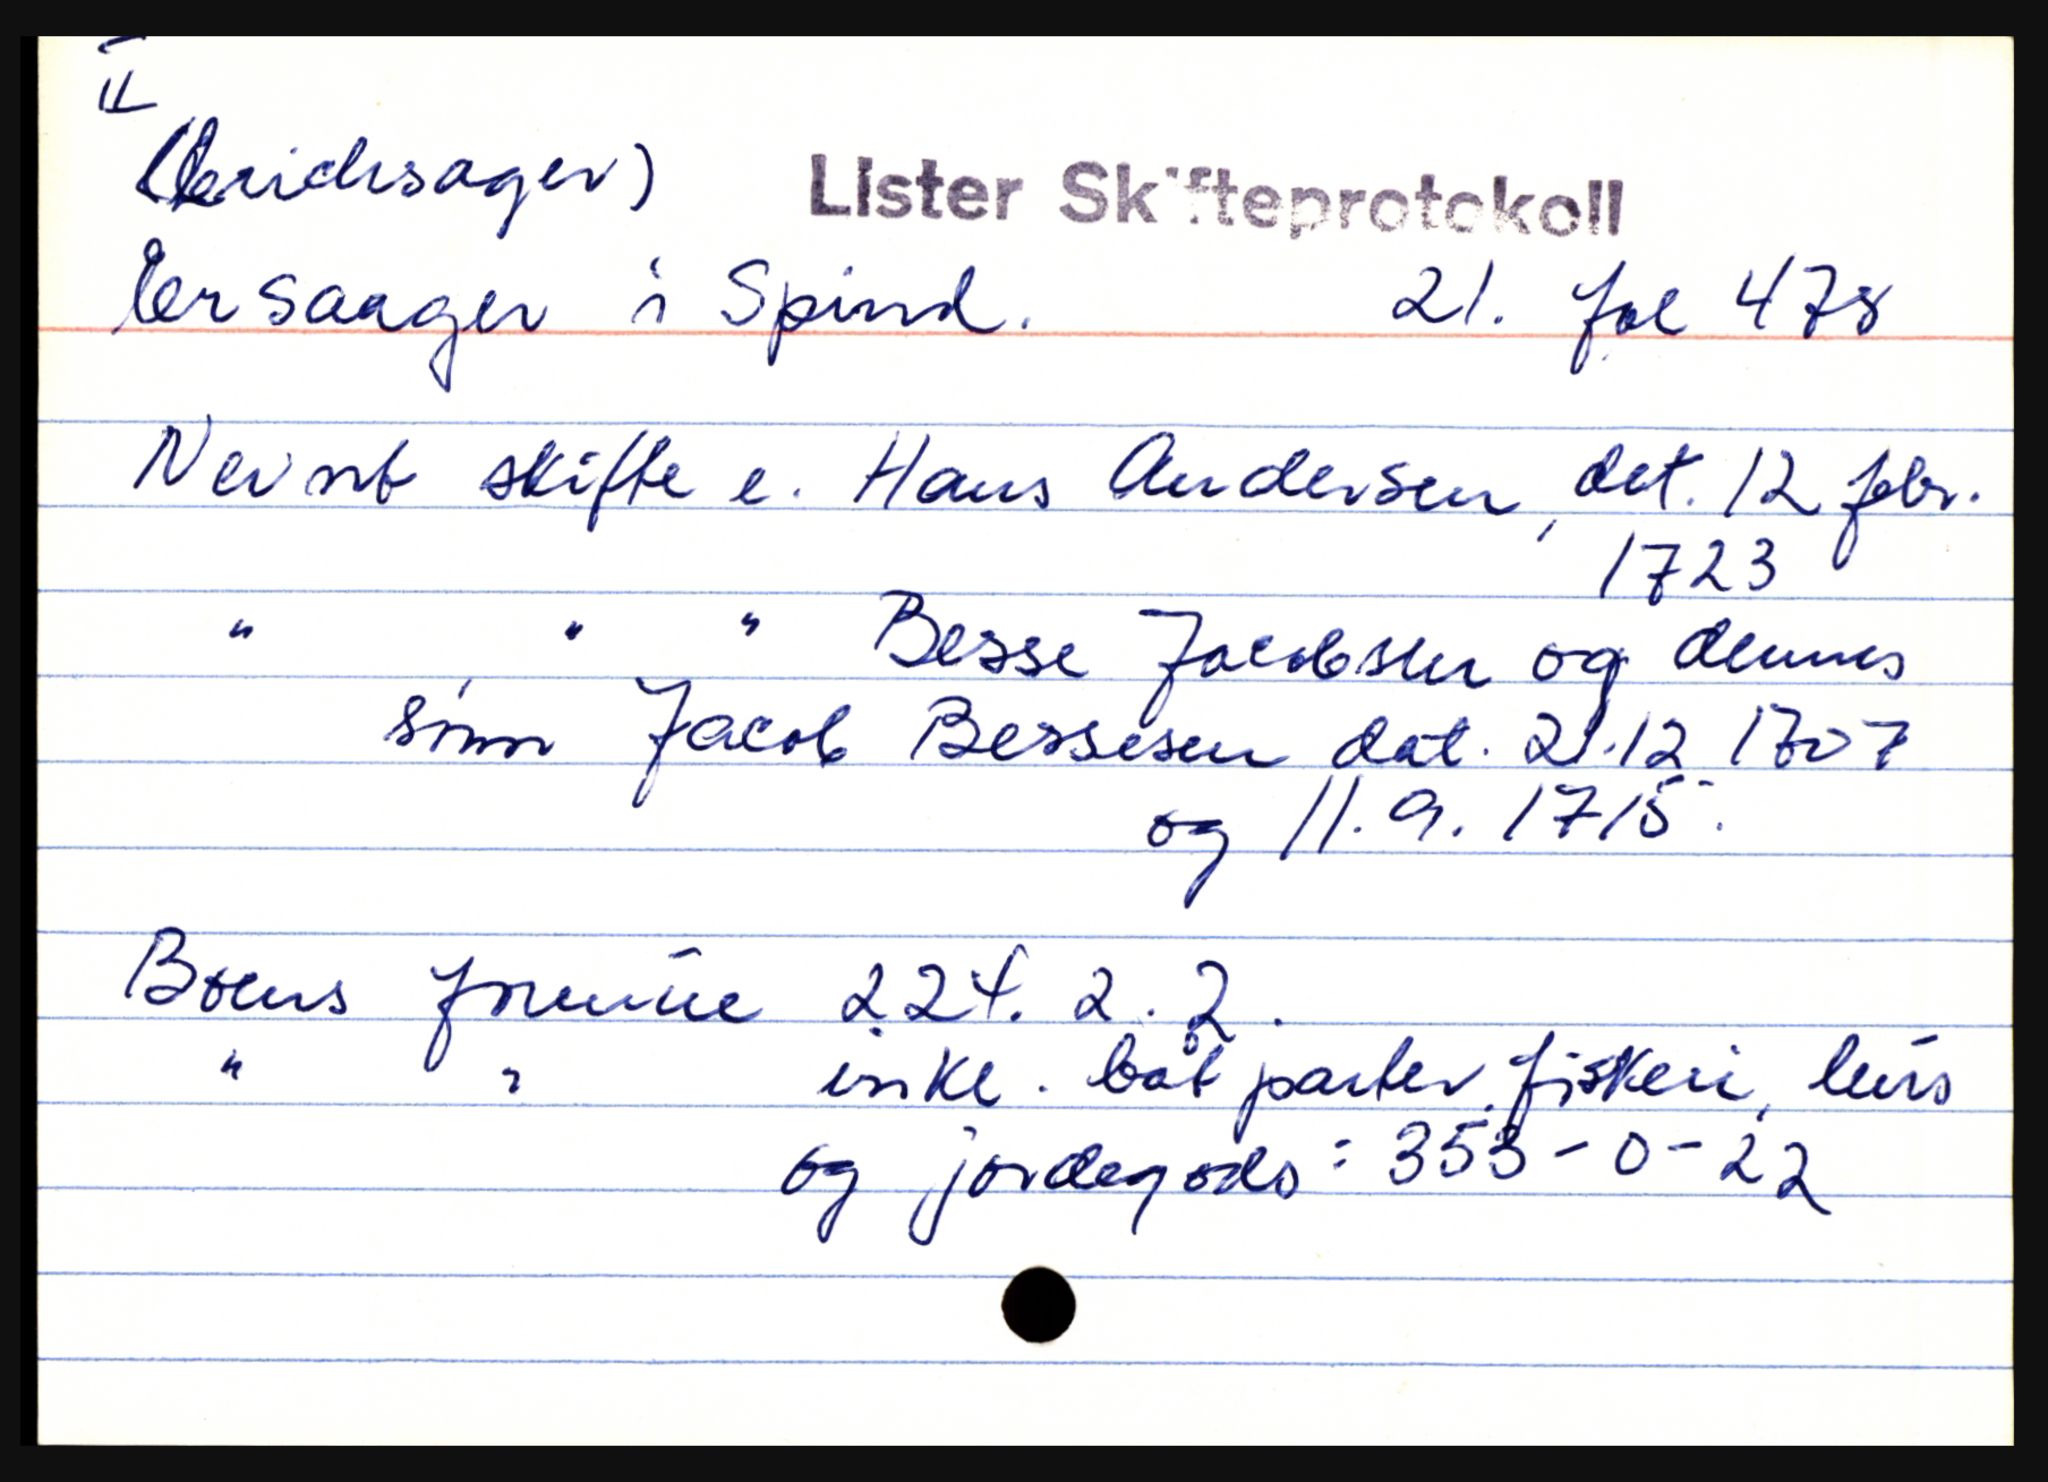 II
(Erichsager)
Lister Skifteprotokoll
Ersaager i Spind. 21. fol 478
Nevnt skifte e. Hans Andersen, dat. 12 febr.
1723
" " " Besse Jacobsen og dennes
sønn Jacob Bessesen dat. 21.12 1707
og 11.9.1715.
Boens formue 224. 2. 2.
" " inkl. båt parter, fiskeri, hus
og jordegods: 353-0-22